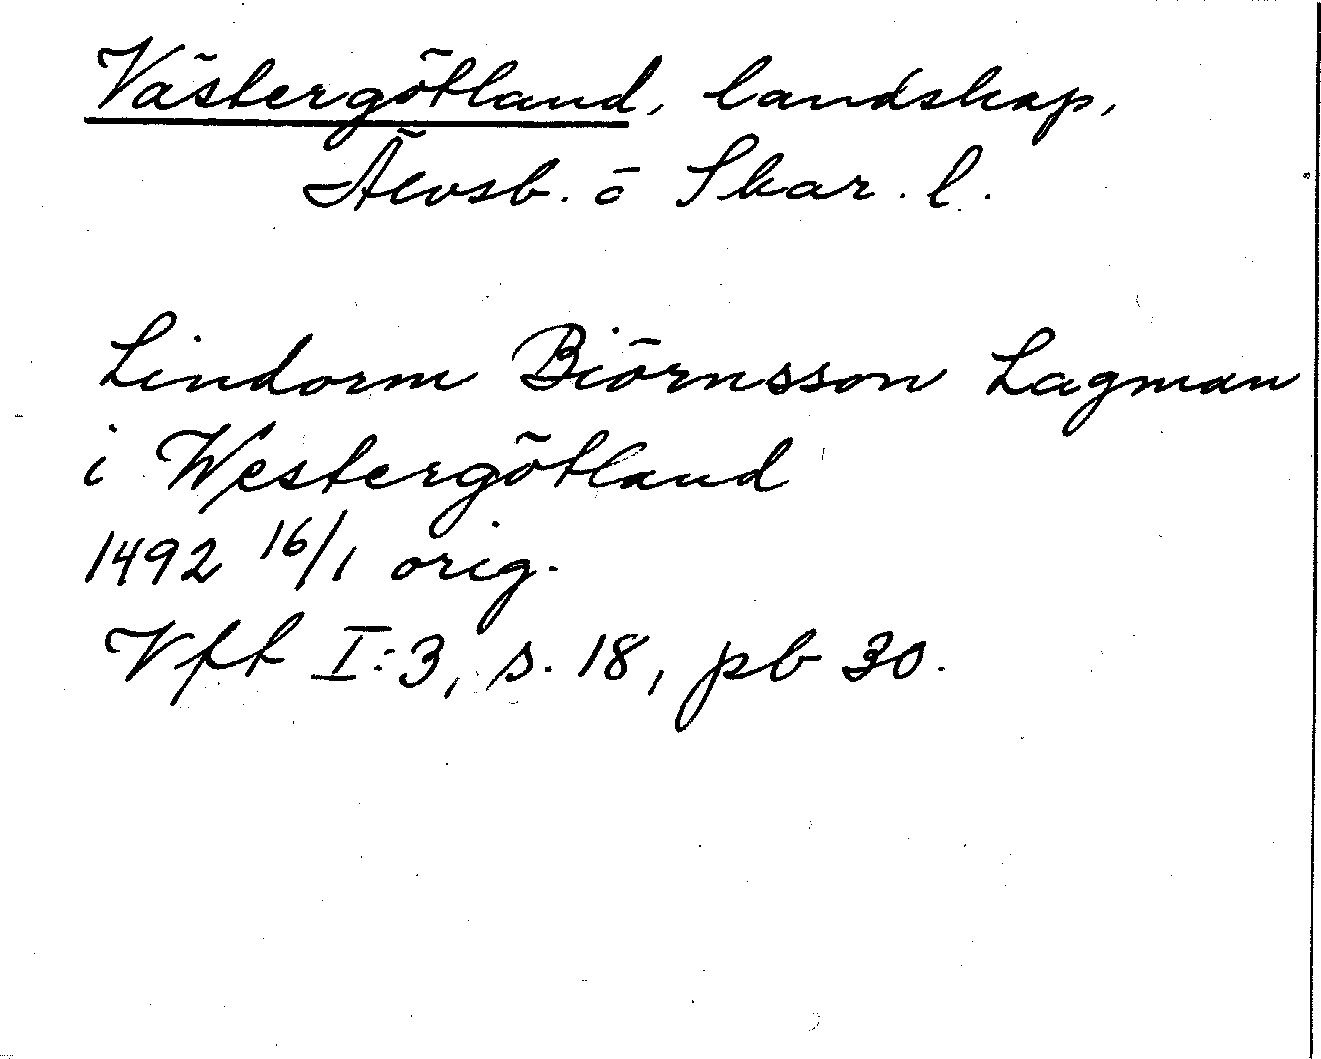 Västergötland, landskap,
Älvsb. o Skar. l.
Lindorm Biörnsson Lagman
i Westergötland
1492 16/1 orig.
Vft I:3, s. 18, pb 30.